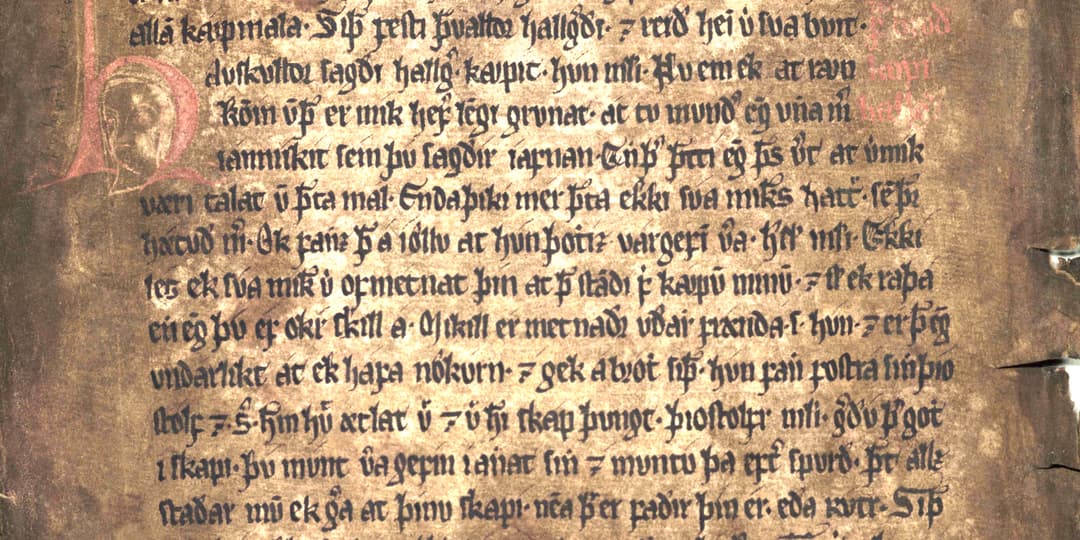 allā kaupmala· Siþ̄ festi þvalldr hallgdi· ⁊ reið hei v̄ sva buit·
Auskulldr sagdi hallḡ· kaupit· hun mli· Nu em ek at raun
kōm v̄þ̄ er mik hef̄ lēgi grunat· at tu mund᷑ eg̅ vn̄a m̅
iammikit sem þu sagdir iafnan· En þ᷑ þtti eg̅ þ̄s v̄t at v̄ mik
væri talat v̄ þ̄ta mal· Enda þiki mer þ̄ta ekki sva mik̄s hatt᷑· sē þ᷑
hætud m̅· Ok fanz þ̄ a iollu at hun þotiz vargefī v̄a· h̅ mli· Ekki
let ek sva mik̄ v̄ ofmetnat þin at þ̄ stādi f᷑ kaupū minū· ⁊ sl ek raþa
en eg̅ þu ef okr skill a· Mikill er metnadr ydar frænda· s· hun· ⁊ er þ̄ eg̅
vndarlikt at ek hafa nokurn· ⁊ gek a brot siþ̄· hun fan̄ fostra sin þio
stolf ⁊ s̄· h̅m hv̄ ætlat v̄ ⁊ v̄ h̅i skap þungt· þiostolfr mli· g̅du þ᷑ got
i skapi· þu munt v̄a gefin i an̄at sin̄ ⁊ muntu þa ept᷑ spurd· þt̄ allz
stadar mū ek g̅a at þinu skapi· nēa þ̄ er fadir þin er· eda rutr· Siþ̄